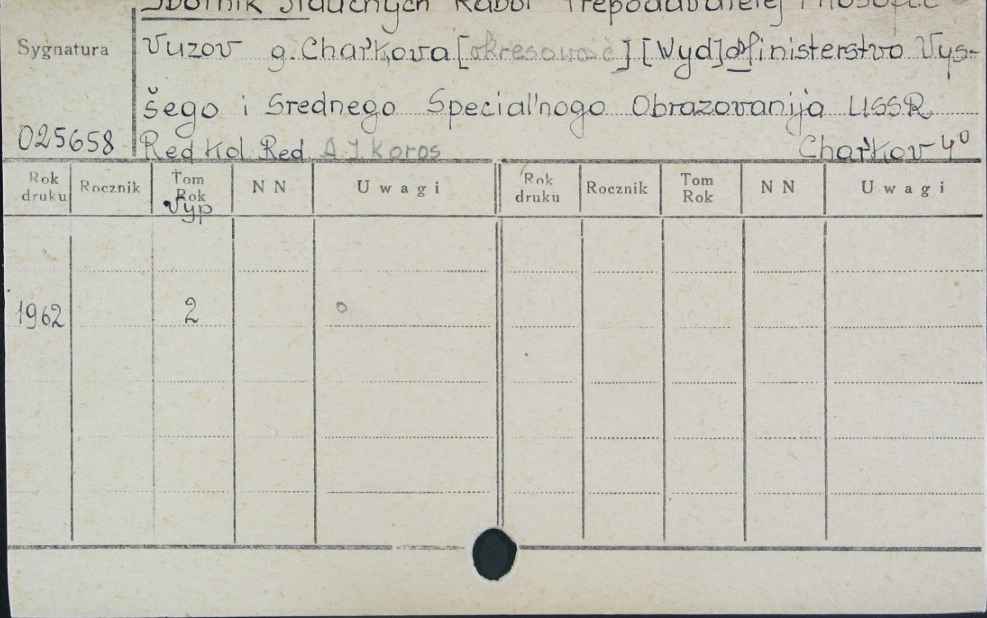 Sbornik Naučnych Rabot Prepodavatelej Filosofii
Sygnatura Vuzov g. Char'kova [okresowość] [Wyd] Ministerstvo Vys-
šego i Srednego Special'nogo Obrazovanija USSR
025658 Red Kol Red A I Koros Char'kov 4°
Rok druku Rocznik Tom Rok Vyp N N Uwagi Rok druku Rocznik Tom Rok N N Uwagi
1962 2